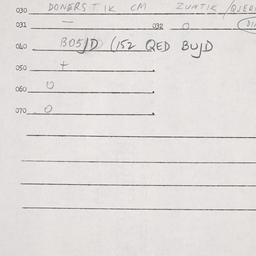 030 DONERSTIK CM ZUNTIK
031 — 032 O
040 BOSJD (152 QED BUJD
050 +
060 O
070 O